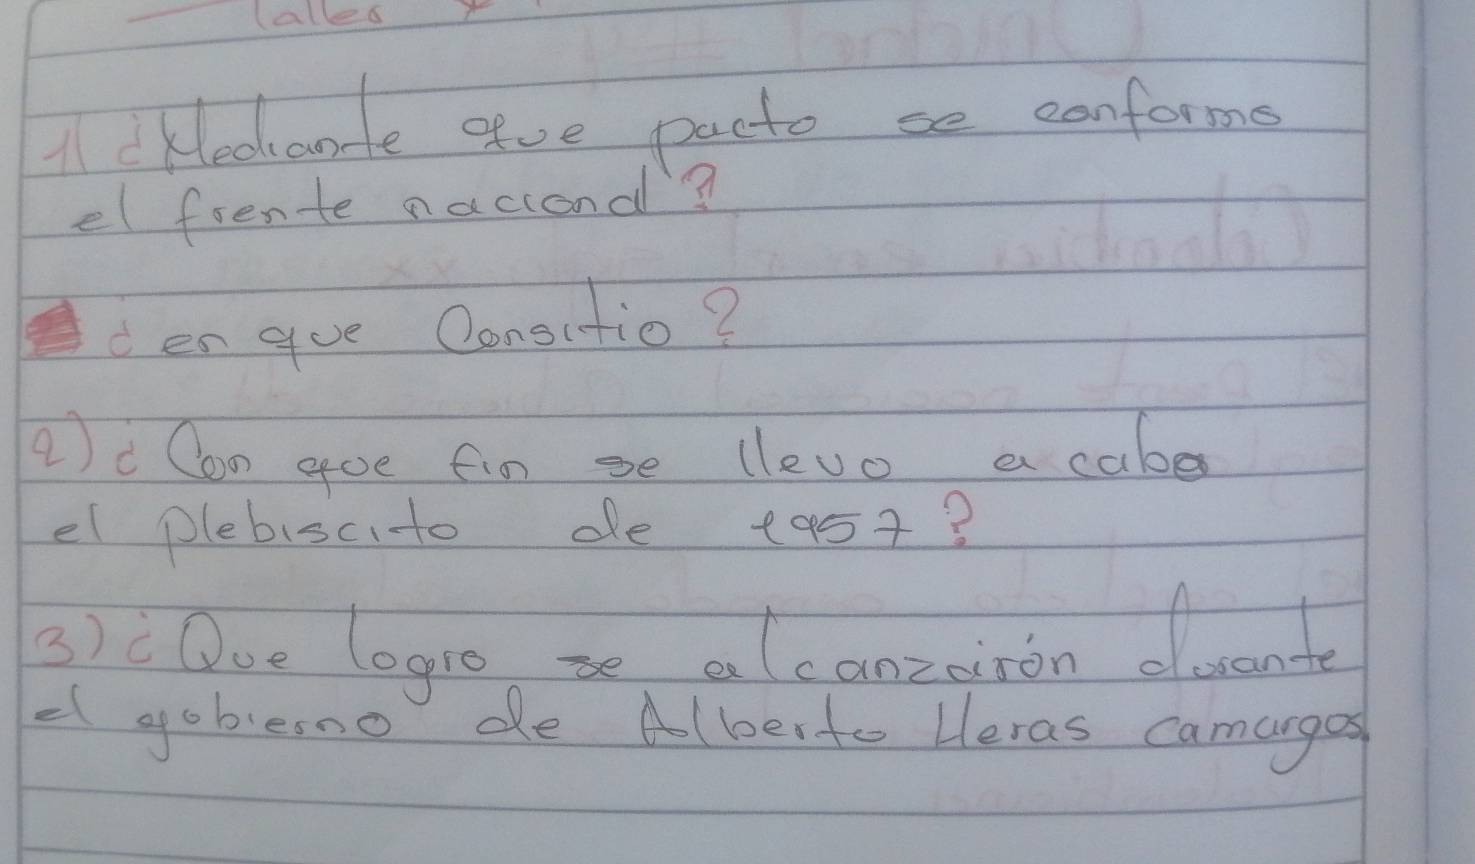 Taller
1) ¿Mediante que pacto se conformo
el frente nacional?
¿ en que Consitio?
2) ¿ Con que fin se llevo a cabo
el plebiscito de 1957?
3) ¿ Que logro se alcanzairón durante
el gobierno de Alberto lleras camargos